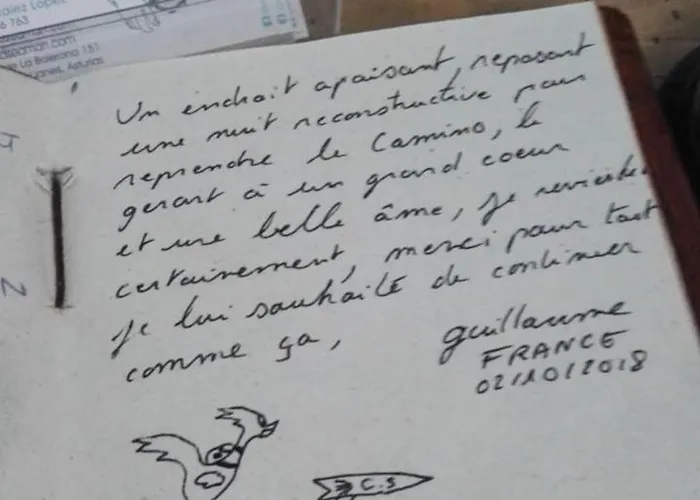 zález López
6 763
eaman.com
La Bolerona 151
anes, Asturias
Un endroit apaisant, reposant
une nuit reconstructive pour
reprendre le Camino, le
gerant à un grand coeur
et une belle âme, je reviendrai
certainement, merci pour tout
je lui souhaite de continuer
comme ça,
guillaume
FRANCE
02/10/2018
C.S